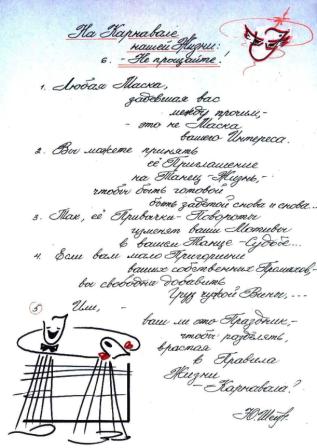 На Карнавале
нашей Жизни:
6. - Не прощайте!
1. Любая Маска,
задевшая вас
между прочим,-
- это не Маска
вашего Интереса.
2. Вы можете принять
её Приглашение
на Танец-Жизнь,-
чтобы быть готовой
быть задетой снова и снова...
3. Так, её Привычки-Повороты
изменят ваши Мотивы
в вашем Танце-Судьбе...
4. Если вам мало Пригоршни
ваших собственных Промахов,-
вы свободны добавить
Груз чужой Вины,...
5. Или, -
ваш ли это Праздник,-
чтобы разделять,
врастая
в Правила
Жизни
-Карнавала?